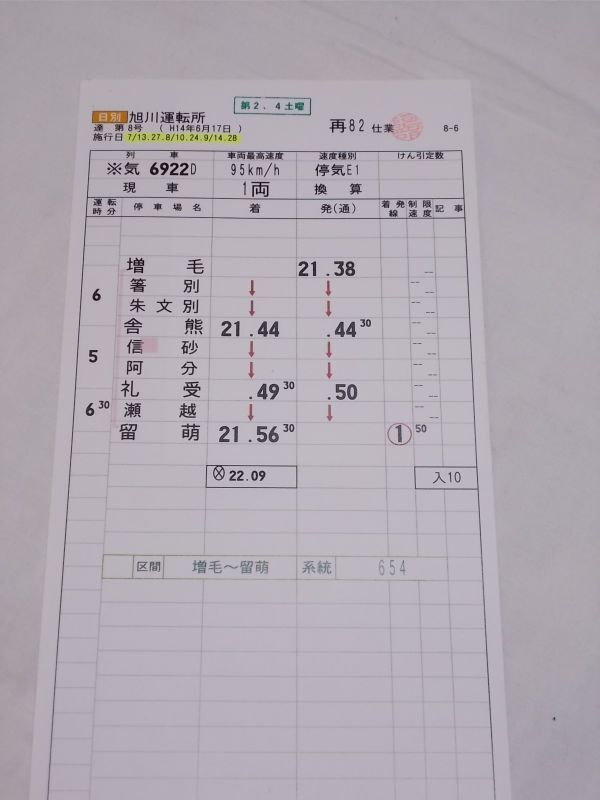 第2、4土曜
日別 旭川運転所
達 第8号 ( H14年6月17日 ) 再82 仕業 8-6
施行日 7/13.27.8/10.24.9/14.28
列車 車両最高速度 速度種別 けん引定数
※気 6922D 95km/h 停気E1
現車 1両 換算
運転時分 停車場名 着 発(通) 着発線 制限速度 記事
増毛 21.38 --
6 箸別 ↓ ↓ --
朱文別 ↓ ↓ --
舎熊 21.44 .44 30 --
5 信砂 ↓ ↓ --
阿分 ↓ ↓ --
礼受 .49 30 .50 --
6 30 瀬越 ↓ ↓ --
留萌 21.56 30 ① 50
ⓧ 22.09 入10
区間 増毛〜留萌 系統 654